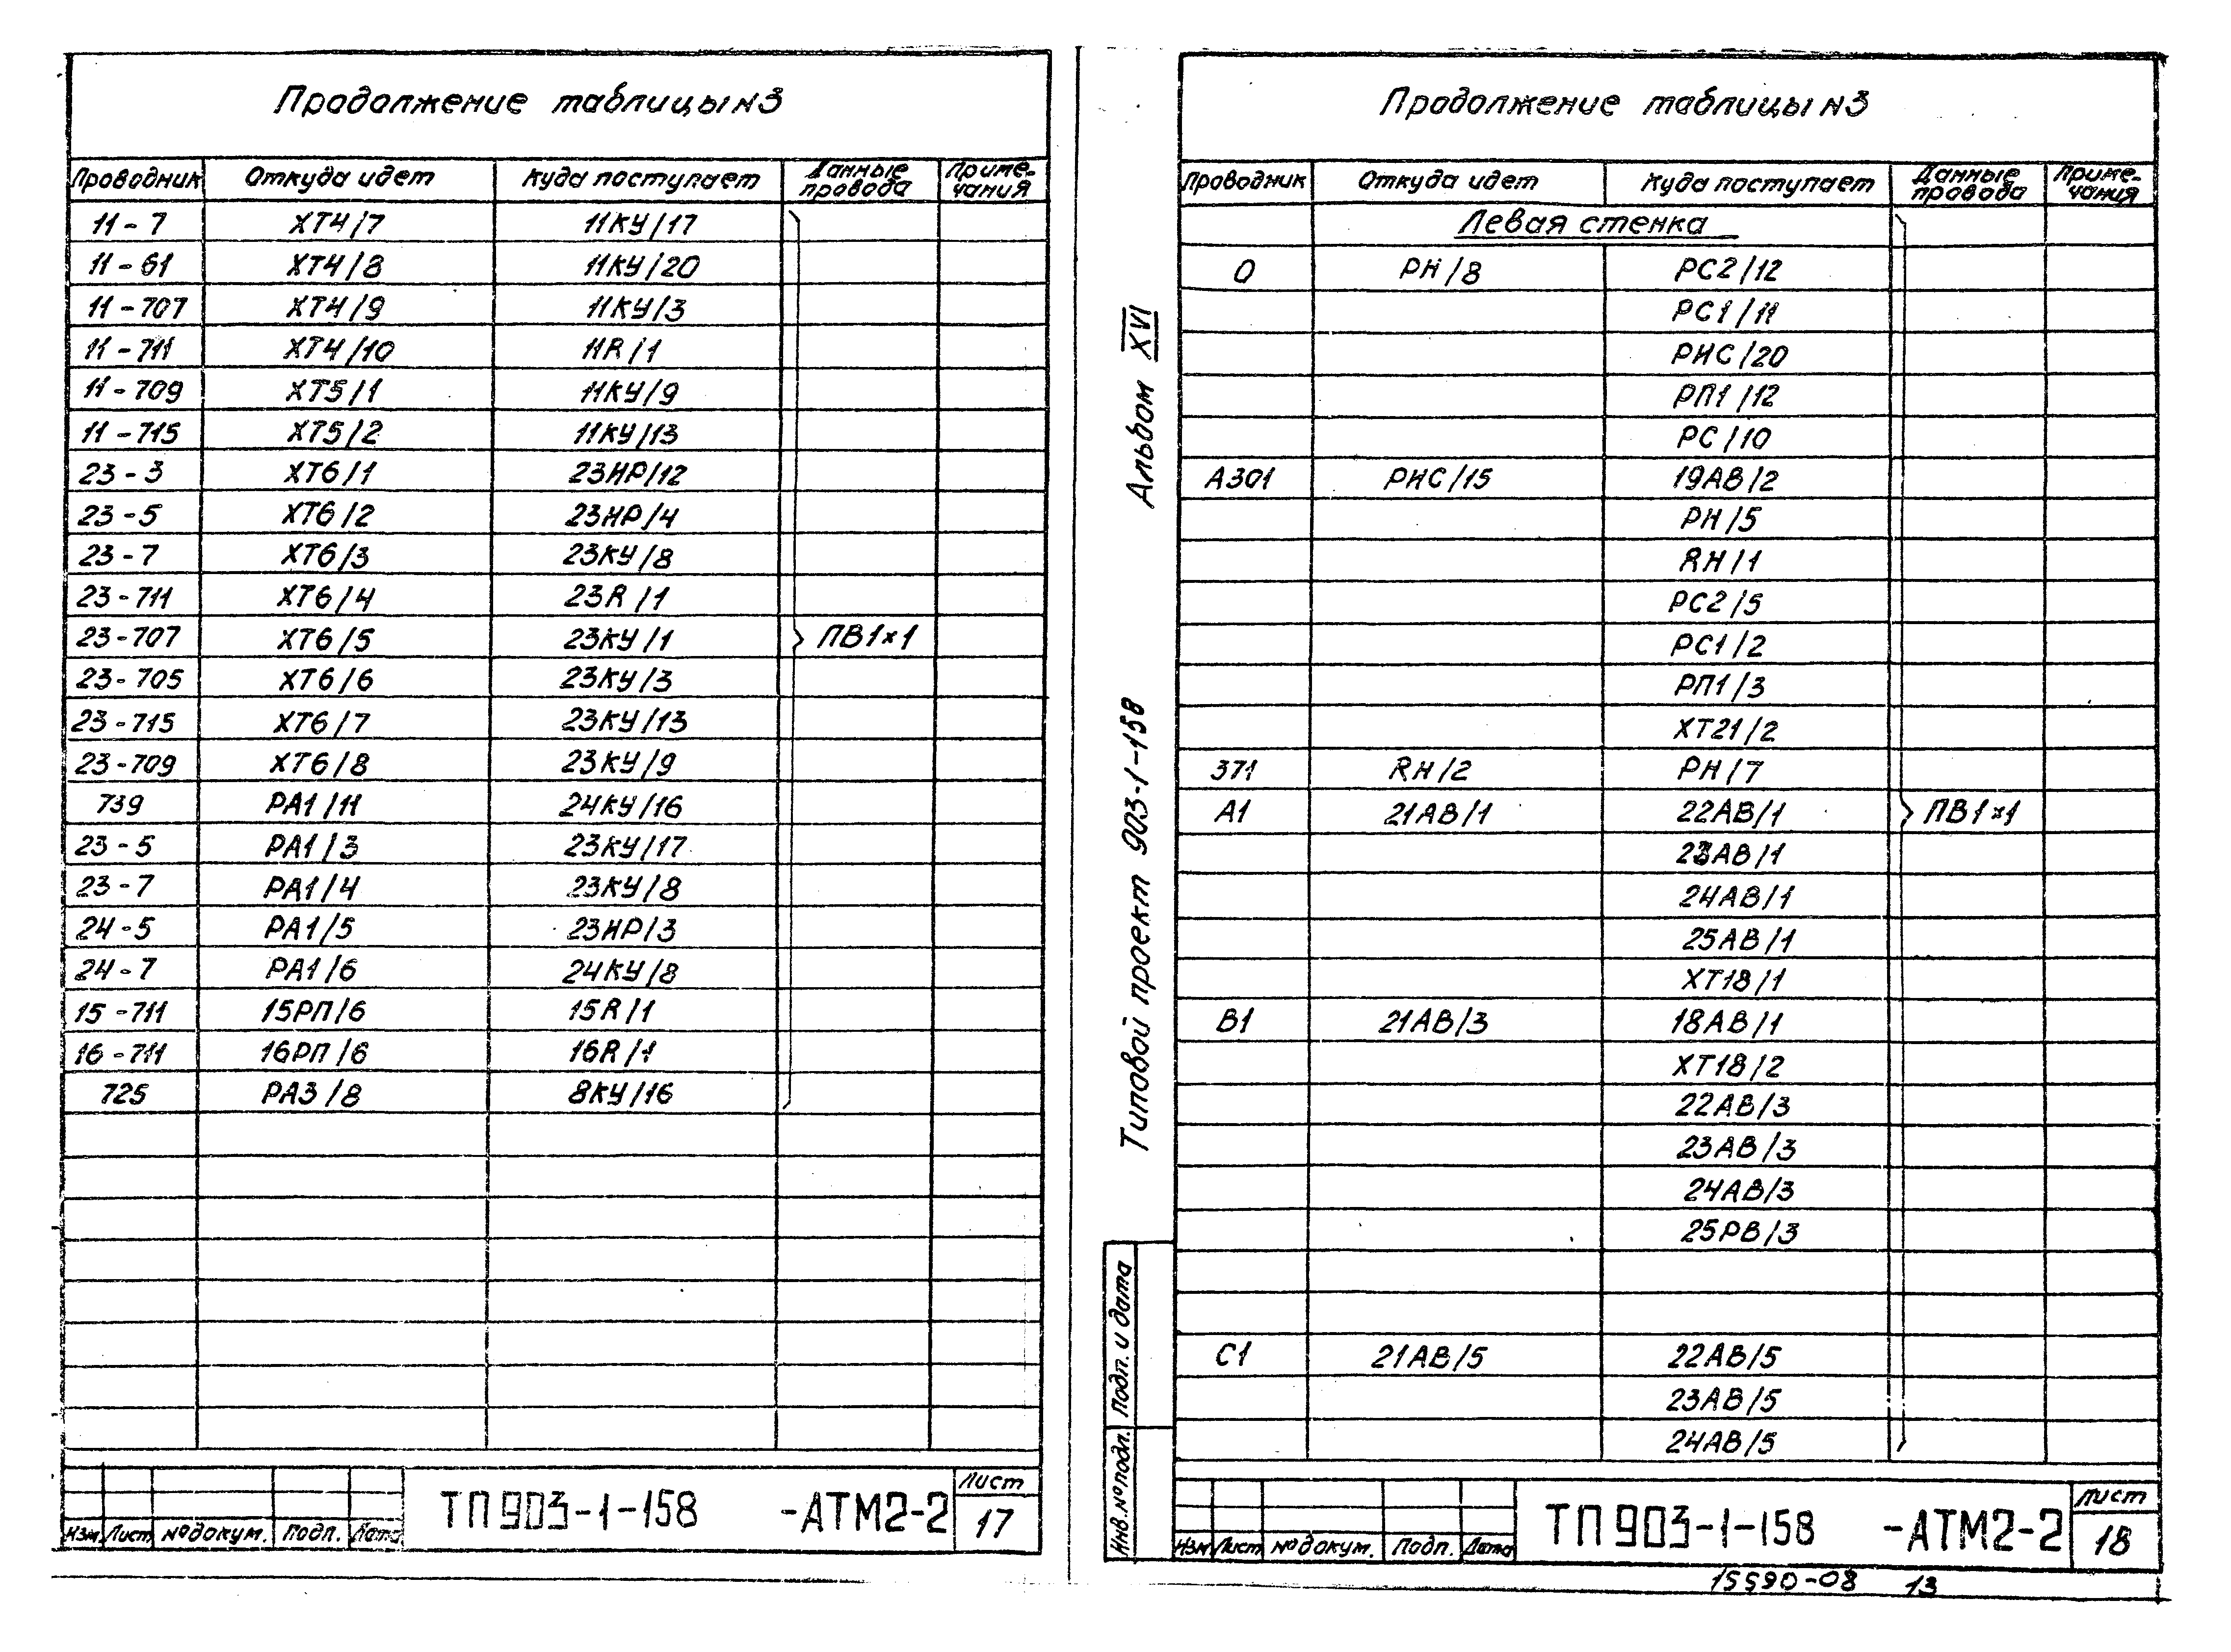 Продолжение таблицы N3
Проводник Откуда идет Куда поступает Данные провода Приме-чания
11-7 ХТ4/7 11КУ/17
11-61 ХТ4/8 11КУ/20
11-707 ХТ4/9 11КУ/3
11-711 ХТ4/10 11R/1
11-709 ХТ5/1 11КУ/9
11-715 ХТ5/2 11КУ/13
23-3 ХТ6/1 23НР/12
23-5 ХТ6/2 23НР/4
23-7 ХТ6/3 23КУ/8
23-711 ХТ6/4 23R/1
23-707 ХТ6/5 23КУ/1 ПВ1×1
23-705 ХТ6/6 23КУ/3
23-715 ХТ6/7 23КУ/13
23-709 ХТ6/8 23КУ/9
739 РА1/11 24КУ/16
23-5 РА1/3 23КУ/17
23-7 РА1/4 23КУ/8
24-5 РА1/5 23НР/3
24-7 РА1/6 24КУ/8
15-711 15РП/6 15R/1
16-711 16РП/6 16R/1
725 РА3/8 8КУ/16
Изм Лист №докум. Подп. Дата
ТП 903-1-158 -АТМ2-2
Лист
17
Альбом XVI
Типовой проект 903-1-158
Подп. и дата
Инв.№подл.
Продолжение таблицы N3
Проводник Откуда идет Куда поступает Данные провода Приме-чания
Левая стенка
0 РН/8 РС2/12
РС1/11
РИС/20
РП1/12
РС/10
А301 РИС/15 19АВ/2
РН/5
RН/1
РС2/5
РС1/2
РП1/3
ХТ21/2
371 RН/2 РН/7
А1 21АВ/1 22АВ/1 ПВ1×1
23АВ/1
24АВ/1
25АВ/1
ХТ18/1
В1 21АВ/3 18АВ/1
ХТ18/2
22АВ/3
23АВ/3
24АВ/3
25РВ/3
С1 21АВ/5 22АВ/5
23АВ/5
24АВ/5
Изм Лист №докум. Подп. Дата
ТП 903-1-158 -АТМ2-2
Лист
18
15590-08 13